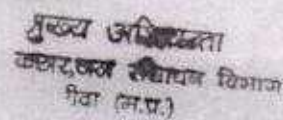 मुख्य अभियन्ता
जल संसाधन विभाग
रीवा (म.प्र.)